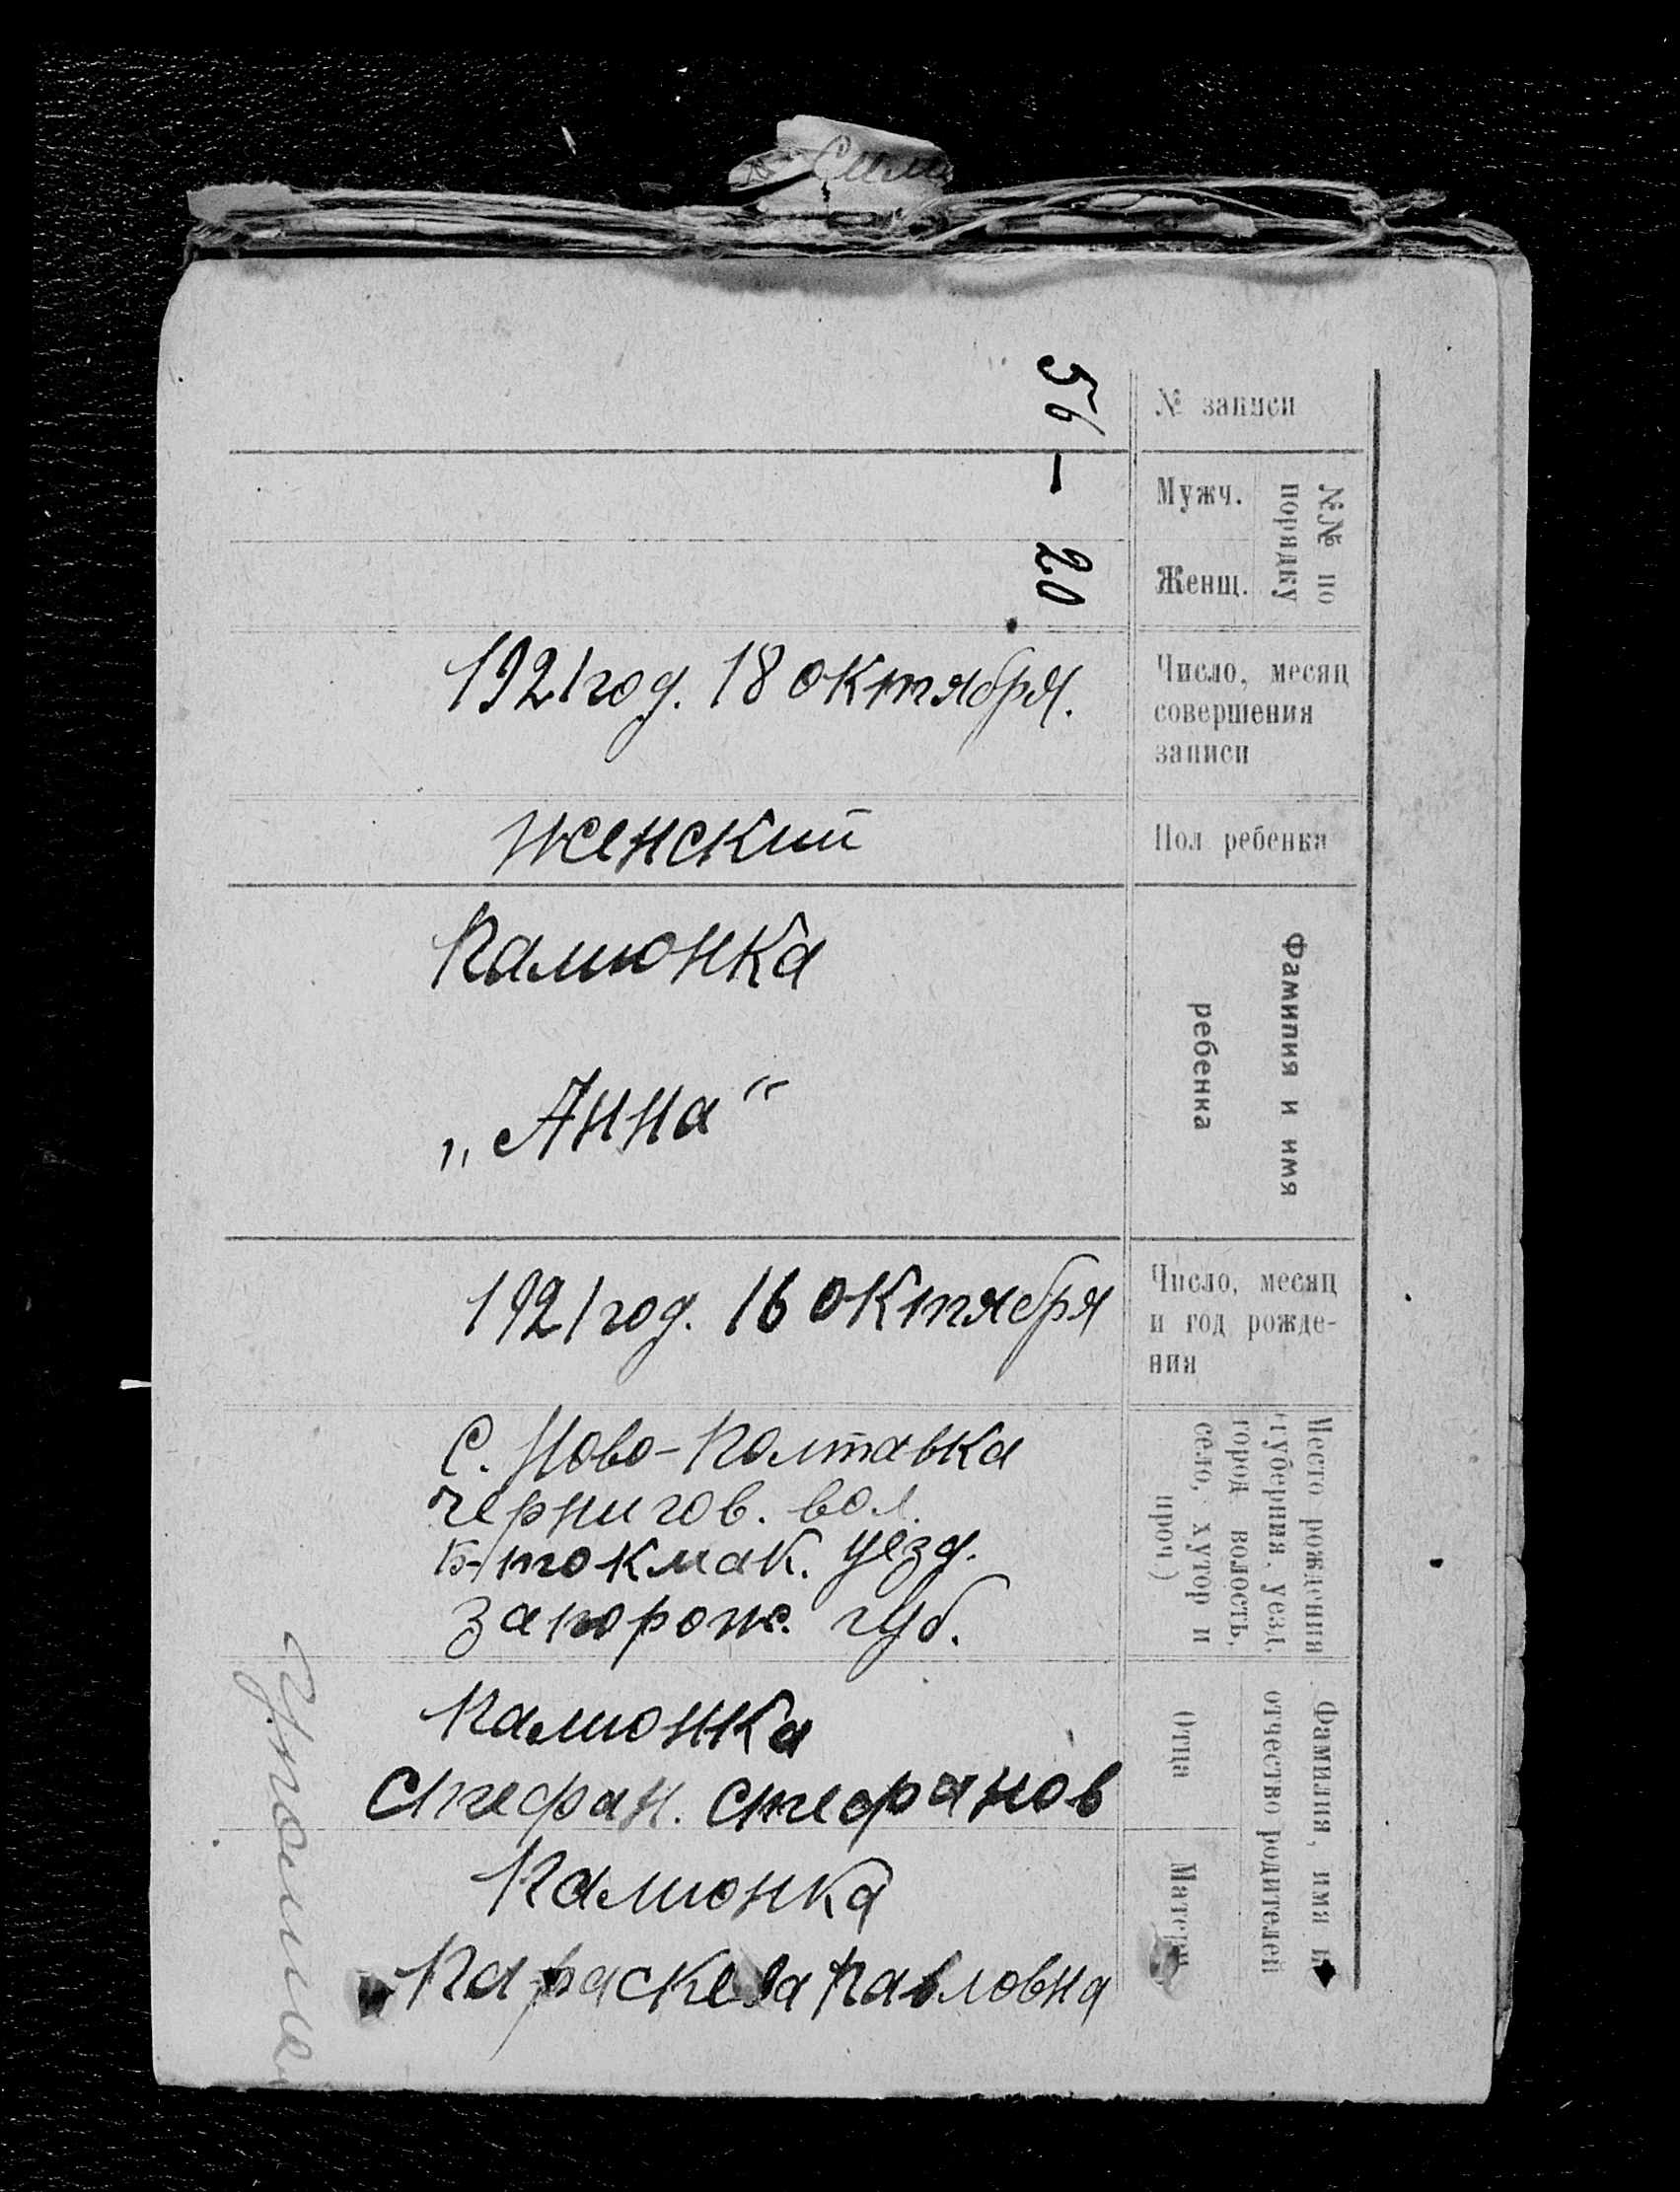 № записи
56
№№ по
порядку
Мужч.
–
Женщ.
20
Число, месяц
совершения
записи
1921 год. 18 октября.
Пол ребенка
женский
Фамилия и имя
ребенка
Палионка
„Анна“
Число, месяц
и год рожде-
ния
1921 год. 16 октября
Место рождения
(губерния, уезд,
город волость,
село, хутор и
проч.)
С. Ново-Полтавка
Чернигов. вол.
Б-токмак. уезд.
Запорож. губ.
Фамилия, имя и
отчество родителей
Отца
Палионка
Стефан. Стефанов
Матери
Палионка
Параскева Павловна